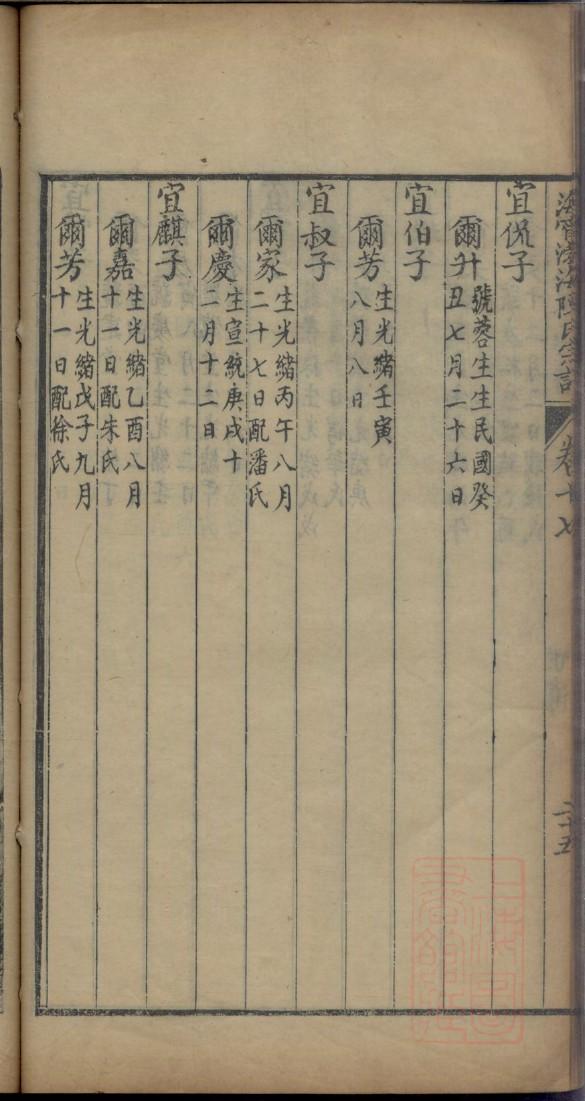 海寧渤海陳氏宗譜
卷十七
二十五
宜侃子
爾升
號蓉生生民國癸
丑七月二十六日
宜伯子
爾芳
生光緒壬寅
八月八日
宜叔子
爾家
生光緒丙午八月
二十七日配潘氏
爾慶
生宣統庚戌十
二月十二日
宜麒子
爾嘉
生光緒乙酉八月
十一日配朱氏
爾芳
生光緒戊子九月
十一日配徐氏